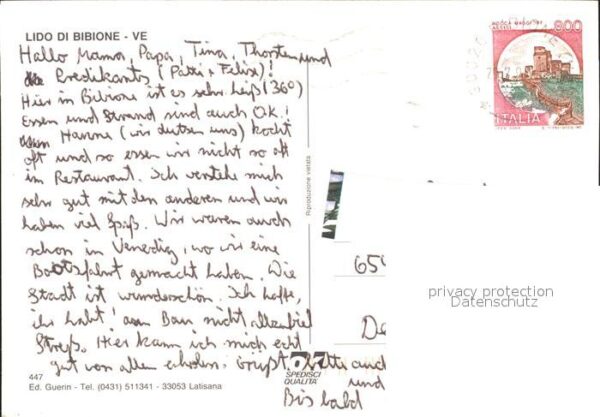 LIDO DI BIBIONE - VE
Hallo Mama, Papa, Tina, Thorsten und
Predikants (Patti + Felix)!
Hier in Bibione ist es sehr heiß (36°)
Essen und Strand sind auch O.K.!
Hanne (wir dutzen uns) kocht
oft und so essen wir nicht so oft
im Restaurant. Ich verstehe mich
sehr gut mit den anderen und wir
haben viel Spaß. Wir waren auch
schon in Venedig, wo wir eine
Bootsfahrt gemacht haben. Die
Stadt ist wunderschön. Ich hoffe,
ihr habt! am Bau nicht allzuviel
Streß. Hier kann ich mich echt
gut von allem erholen. Grüßt bitte auch
und
Bis bald
447
Ed. Guerin - Tel. (0431) 511341 - 33053 Latisana
SPEDISCI
QUALITÀ
Riproduzione vietata
ROCCA MAGGIORE
ASSISI
800
ITALIA
65
De
privacy protection
Datenschutz